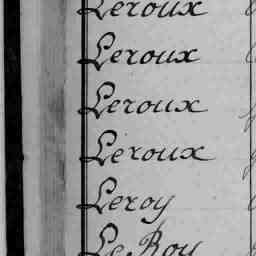 Leroux
Leroux
Leroux
Leroux
Leroy
Le Roy